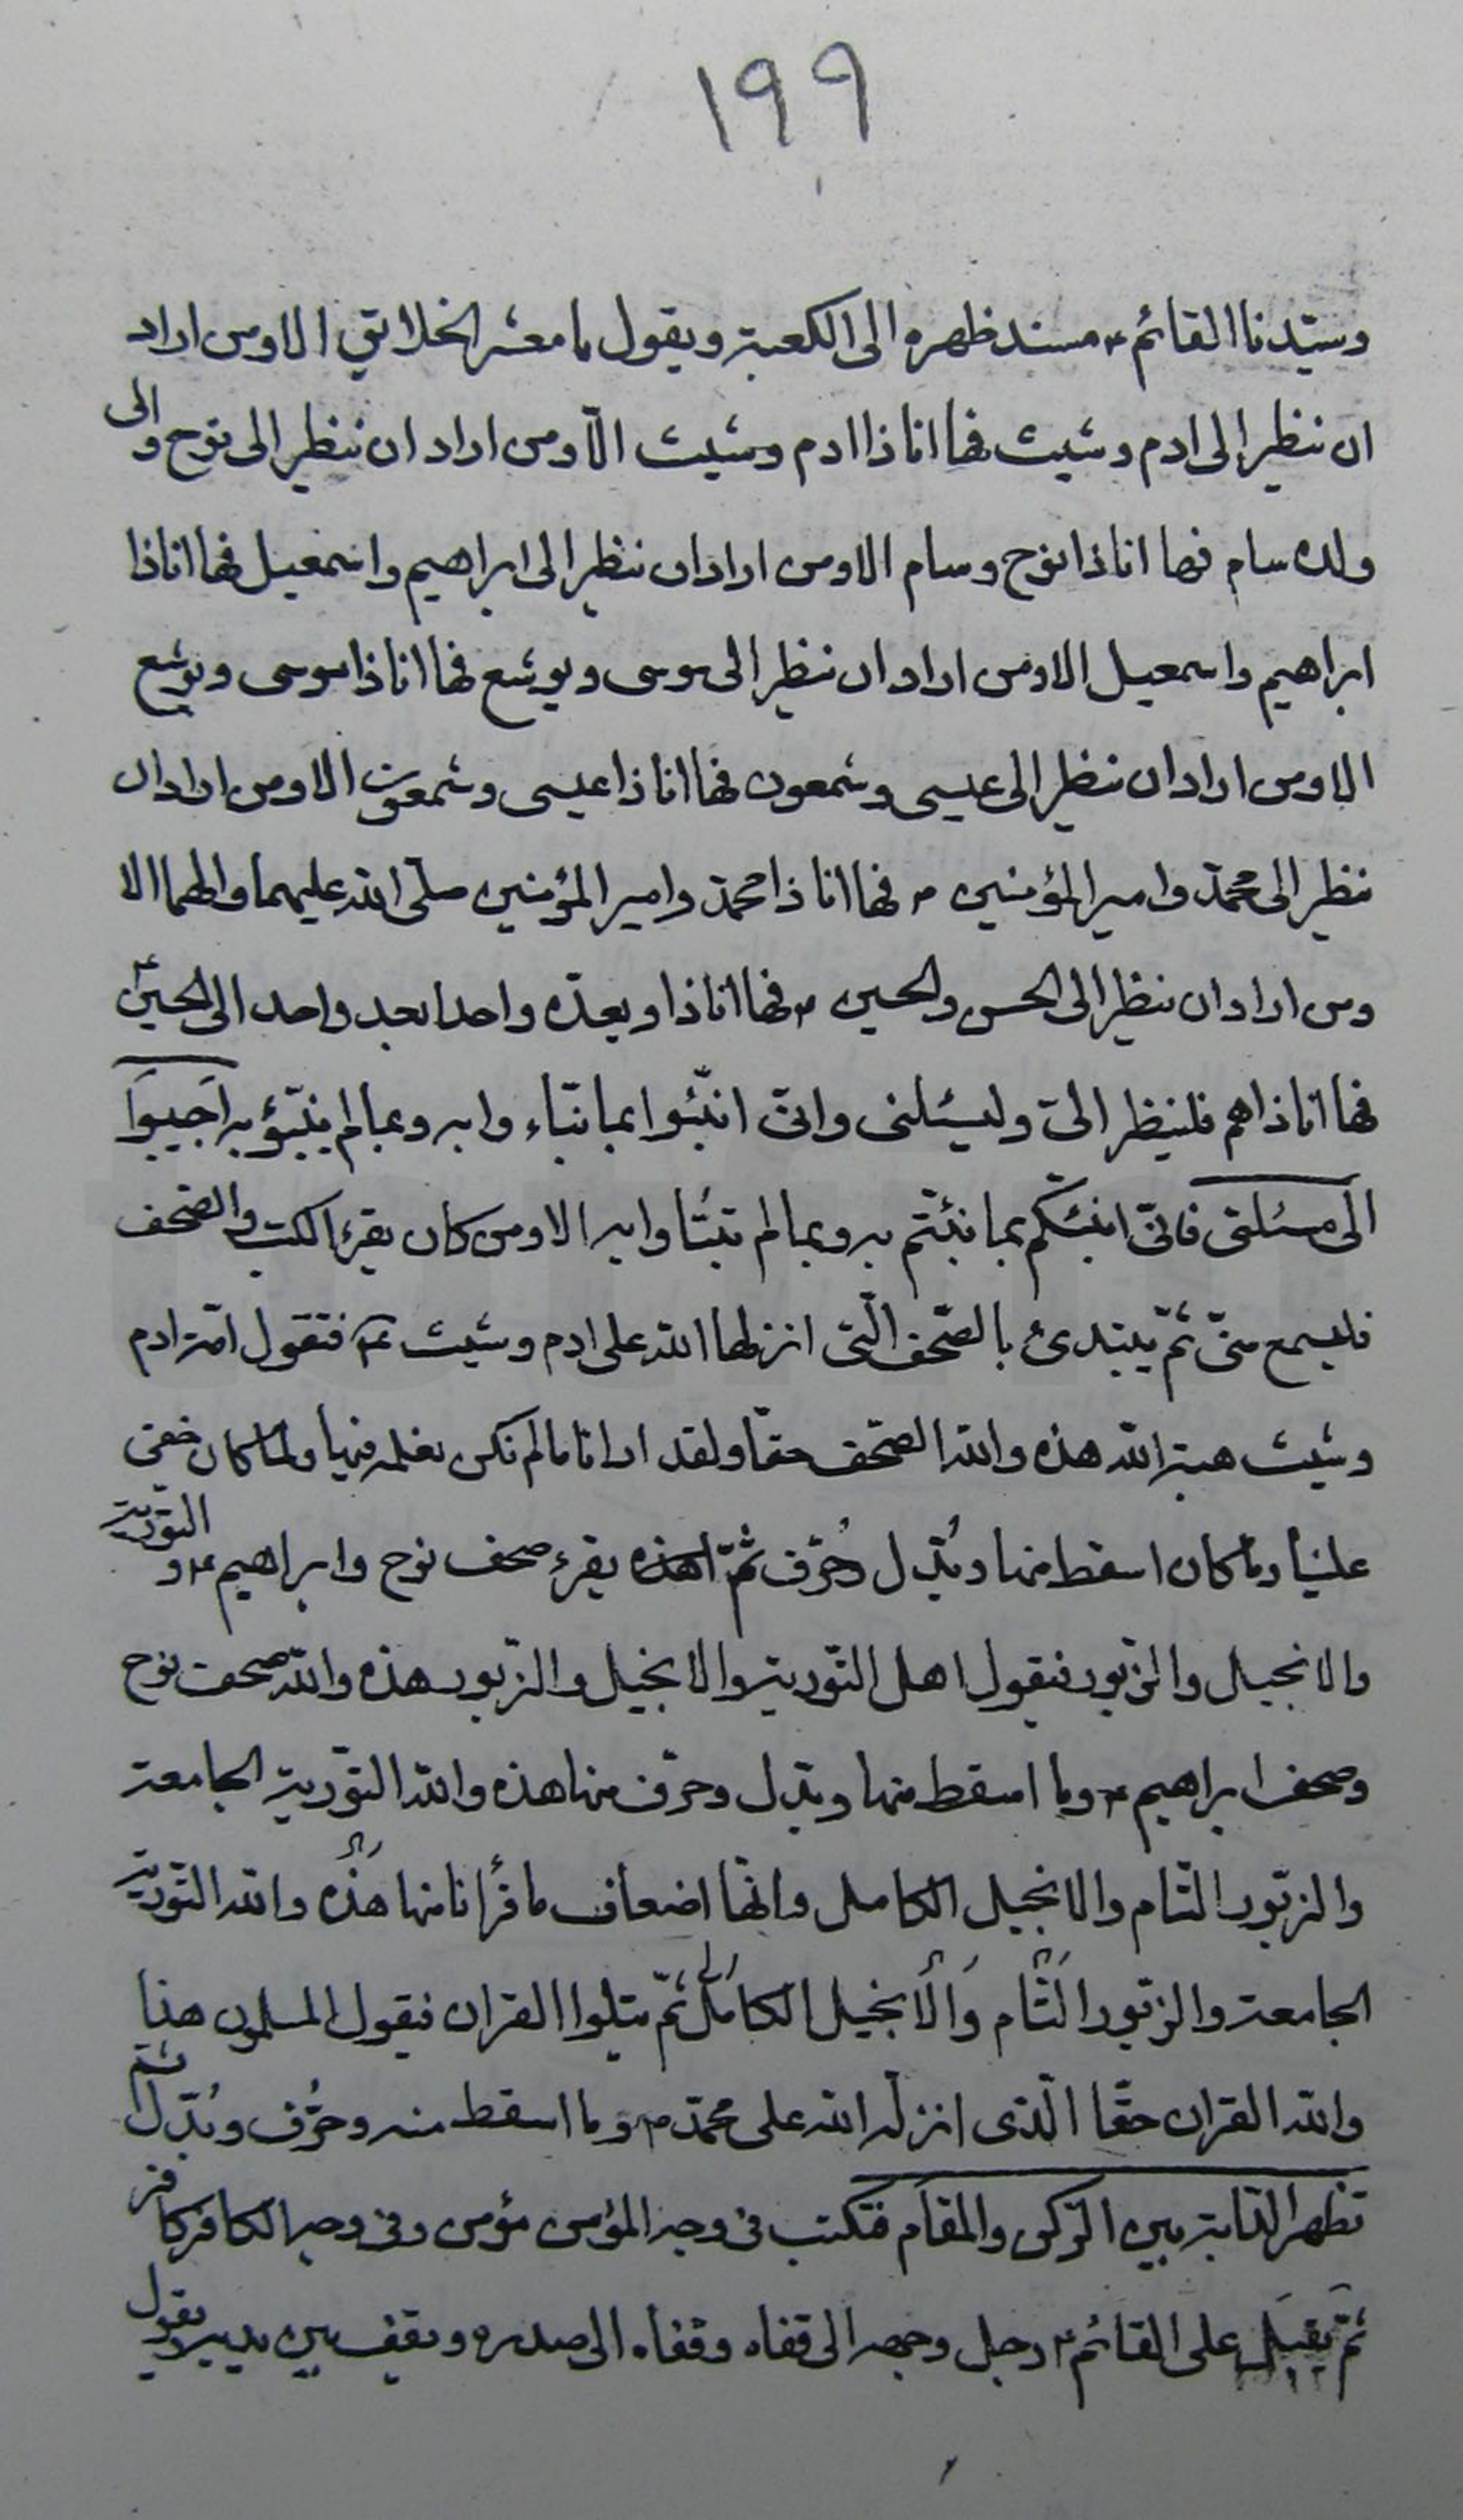 ١٩٩
وسيّدنا القائم ع مسند ظهره الى الكعبة ويقول يا معشر الخلائق الا ومن اراد
ان ينظر الى ادم وشيث فها انا ذا ادم وشيث الا ومن اراد ان ينظر الى نوح والى
ولده سام فها انا ذا نوح وسام الا ومن اراد ان ينظر الى ابراهيم واسمعيل فها انا ذا
ابراهيم واسمعيل الا ومن اراد ان ينظر الى موسى ويوشع فها انا ذا موسى ويوشع
الا ومن اراد ان ينظر الى عيسى وشمعون فها انا ذا عيسى وشمعون الا ومن اراد ان
ينظر الى محمّد وامير المؤمنين ص فها انا ذا محمّد وامير المؤمنين صلّى الله عليهما والهما الا
ومن اراد ان ينظر الى الحسن والحسين ع فها انا ذا ويعدّه واحدا بعد واحد الى الحسين ع
فها انا ذا هم فلينظر الىّ وليسئلنى وانّى انبّئوا بما نبّاء وا به وبما لم ينبّؤ به اجيبوا
الى مسئلتى فانّى انبئكم بما نبّئتم به وبما لم تنبّئوا به الا ومن كان يقرء الكتب والصّحف
فليسمع منّى ثمّ يبتدئ بالصّحف الّتى انزلها الله على ادم وشيث ع فتقول امّة ادم
وشيث هبة الله هذه والله الصّحف حقّا ولقد ارانا ما لم نكن نعلمه فيها وما كان خفى
علينا وما كان اسقط منها وبُدّل وحُرّف ثمّ يقرء صحف نوح وابراهيم ع والتّورية
والانجيل والزّبور فيقول اهل التّورية والانجيل والزّبور هذه والله صحف نوح
وصحف ابراهيم ع وما اسقط منها وبدّل وحرّف منها هذه والله التّورية الجامعة
والزّبور التّام والانجيل الكامل وانّها اضعاف ما قرأنا منها هذه والله التّورية
الجامعة والزّبور التّام والانجيل الكامل ثمّ يتلوا القران فيقول المسلمون هذا
والله القران حقّا الّذى انزله الله على محمّد ص وما اسقط منه وحُرّف وبُدّل ثمّ
تظهر الدّابة بين الرّكن والمقام فتكتب فى وجه المؤمن مؤمن وفى وجه الكافر كافر
ثمّ يقبل على القائم ع رجل وجهه الى قفاه وقفاه الى صدره ويقف بين يديه ويقول